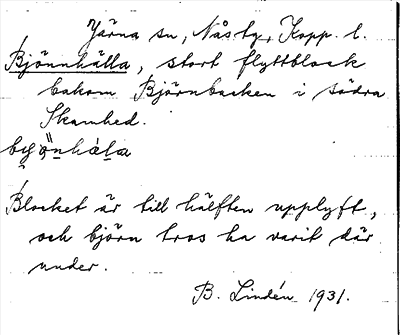 Järna sn, Nås tg, Kopp. l.
Björnhälla, stort flyttblock
bakom Björnbacken i södra
Skamhed.
Blocket är till hälften upplyft,
och björn tros ha varit där
under.
B. Lindén 1931.